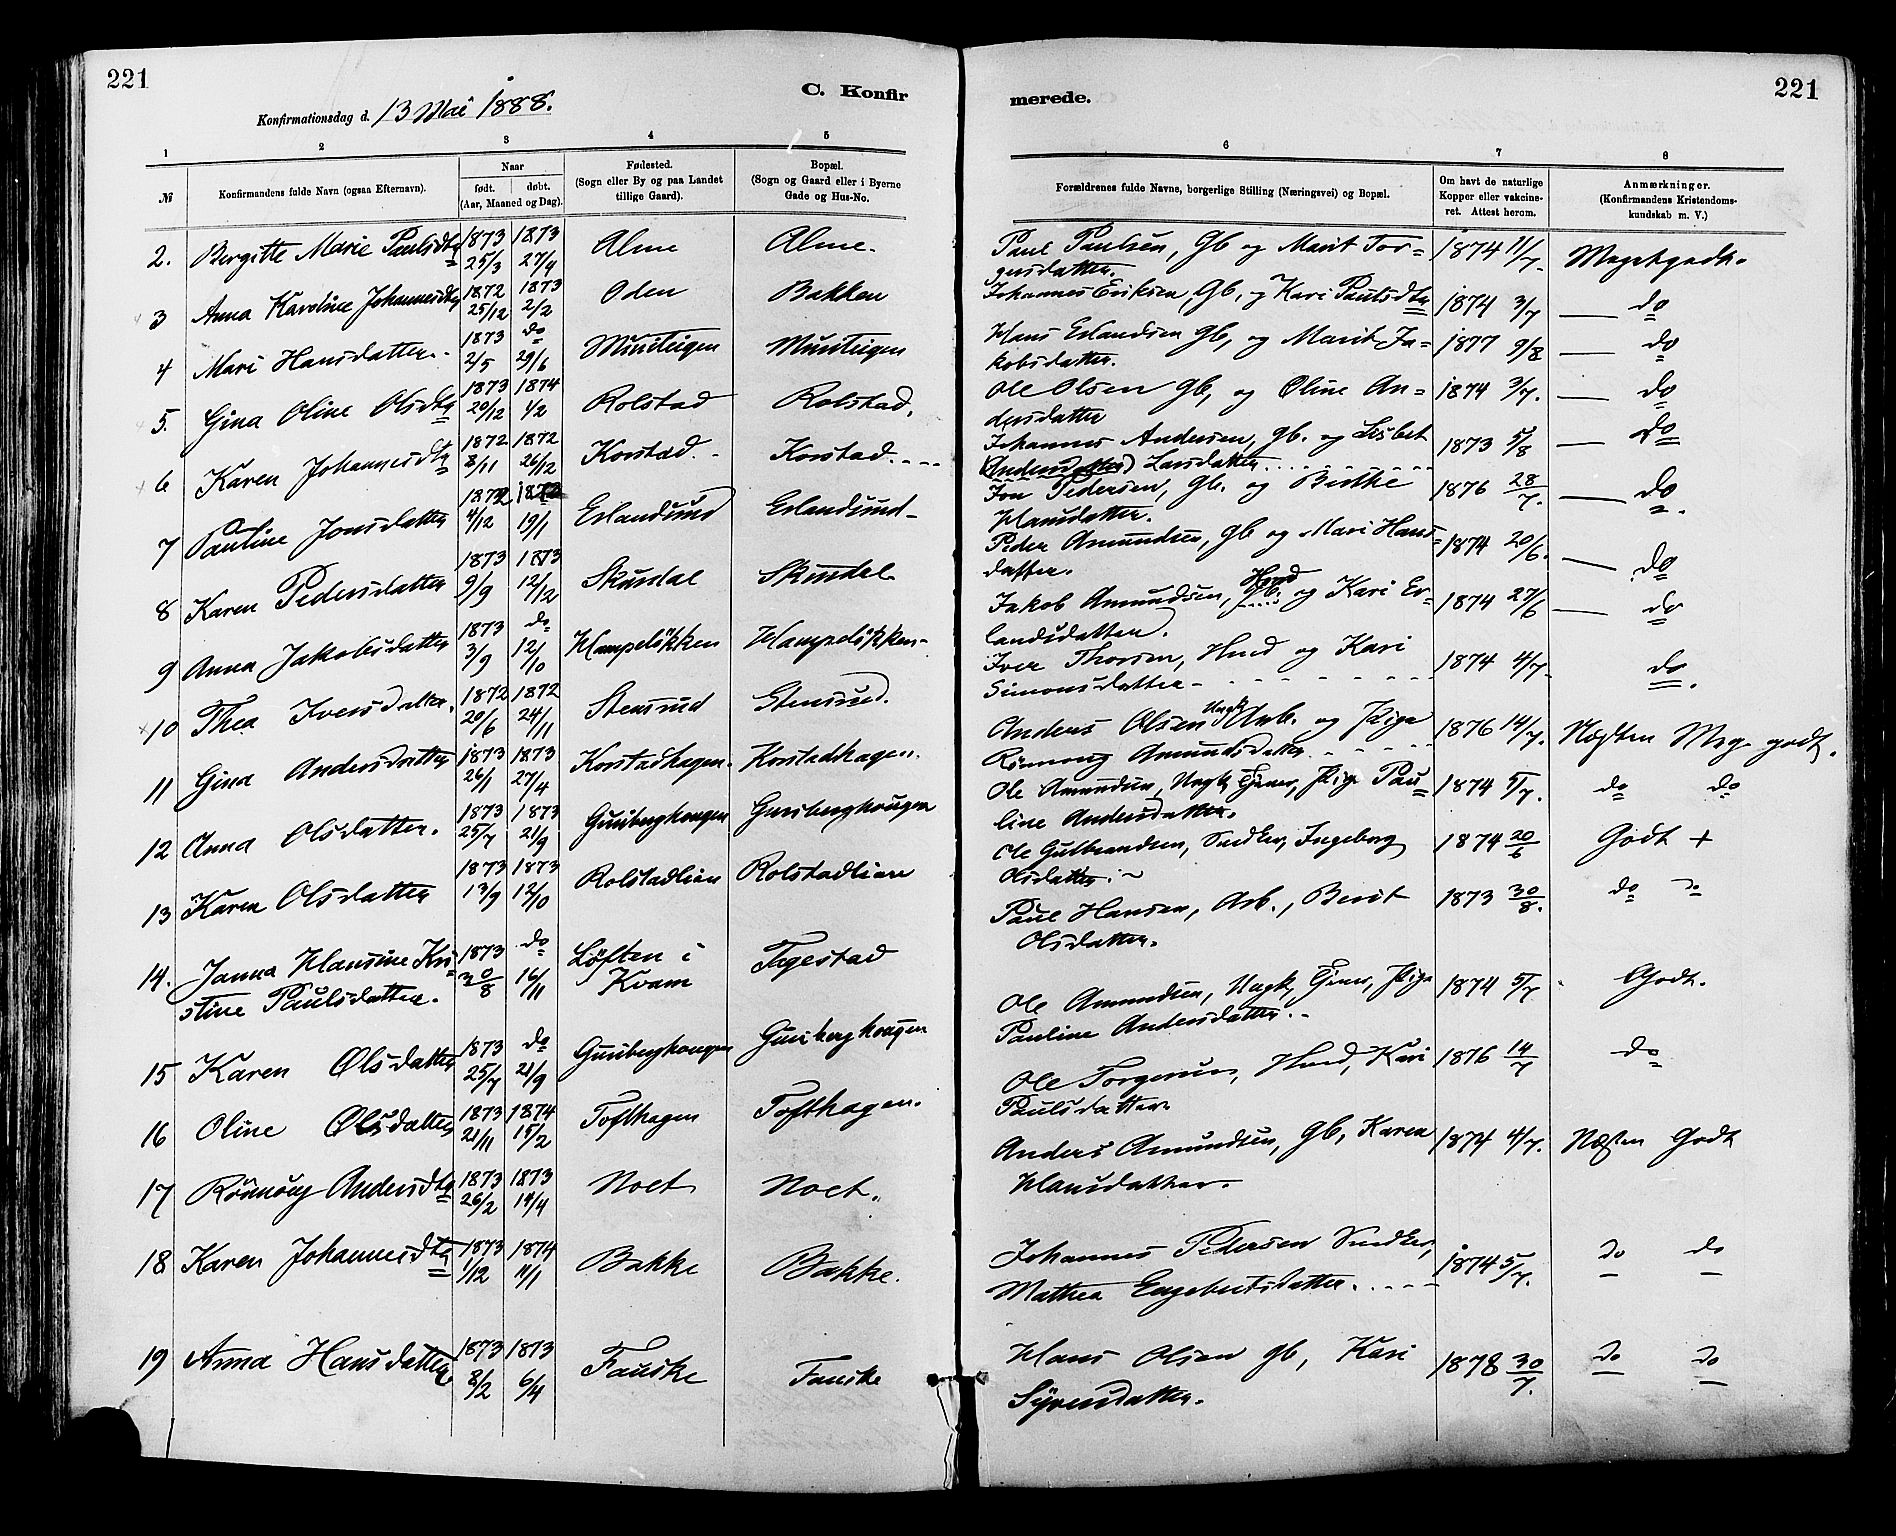 221
C. Konfir
Konfirmationsdag d. 13 Mai 1888.
1 2 3 4 5
№ Konfirmandens fulde Navn (ogsaa Efternavn). Naar født. døbt. (Aar, Maaned og Dag). Fødested. (Sogn eller By og paa Landet tillige Gaard). Bopæl. (Sogn og Gaard eller i Byerne Gade og Hus-No.
2. Bergitte Marie Paulsdtr 1873 25/3 1873 27/4 Alme Alme.
3 Anna Karoline Johannesdtr 1872 25/12 1873 2/2 Oden Bakken
4 Mari Hansdatter. 1873 2/5 do 29/6 Musteigen Musteigen
5. Gina Oline Olsdtr 1873 20/12 1874 1/2 Rolstad Rolstad.
6 Karen Johannesdtr 1872 8/11 1872 26/12 Korstad. Korstad.
7 Pauline Jonsdatter 1872 4/12 19/1 Erlandsund Erlandsund
8 Karen Pedersdatter 1873 9/9 1873 12/12 Skurdal Skurdal
9 Anna Jakobsdatter 1873 3/9 do 12/10 Hampeløkken Hampeløkken
10 Thea Iversdatter. 1872 20/6 1872 24/11 Stensrud Stensrud.
11 Gina Andersdatter 1873 26/1 1873 27/4 Korstadhagen. Korstadhagen.
12 Anna Olsdatter. 1873 25/7 1873 21/9 Gunberghougen Gunberghougen
13 Karen Olsdatter 1873 13/9 1873 12/10 Rolstadlien Rolstadlien
14. Janna Hansine Kri-
stine Paulsdatter. 1873 30/8 do 16/11 Løften i Kvam Fagestad
15 Karen Olsdatter 1873 25/7 do 21/9 Gunberghougen Gunberghougen
16 Oline Olsdatter 1873 21/11 1874 15/2 Tofthagen Tofthagen.
17 Rønnøug Andersdtr 1873 26/2 1873 14/4 Noet Noet.
18 Karen Johannesdtr 1873 1/12 1874 11/1 Bakke Bakke.
19 Anna Hansdatter 1873 8/2 1873 6/4 Fauske Fauske
221
merede.
6 7 8
Forældrenes fulde Navne, borgerlige Stilling (Næringsvei) og Bopæl. Om havt de naturlige Kopper eller vakcineret. Attest herom. Anmærkninger. (Konfirmandens Kristendomskundskab m. V.)
Paul Paulsen, Gb og Marit Tor-
gersdatter. 1874 11/7. Megetgodt.
Johannes Eriksen, Gb, og Kari Paulsdtr 1874 3/7 do
Hans Erlandsen Gb, og Marit Ja-
kobsdatter. 1877 9/8 do
Ole Olsen gb, og Oline An-
dersdatter 1874 3/7. do
Johannes Andersen, gb. og Lisbet
(Andersdatter) Larsdatter. 1873 5/8 do
Jon Pedersen, Gb. og Berthe
Hansdatter. 1876 28/7. do
Peder Amundsen, Gb og Mari Hans-
datter. 1874 20/6. do
Jakob Amundsen, Gb. Hmd og Kari Er-
landsdatter. 1874 27/6 do
Iver Thorsen, Hmd og Kari
Simonsdatter 1874 4/7. do.
Anders Olsen Ungk Arb. og Pige
Rønnoug Amundsdatter 1876 14/7. Næsten Meg. godt.
Ole Amundsen, Ungk, Tjener, Pige Pau-
line Andersdatter. 1874 5/7. do do
Ole Gulbrandsen, Snedker, Ingeborg
Olsdatter. 1874 20/6 Godt +
Paul Hansen, Arb., Berit
Olsdatter. 1873 30/8. do do
Ole Amundsen, Ungk, Tjener, Pige
Pauline Andersdatter. 1874 5/7 Godt.
Ole Torgersen, Hmd, Kari
Paulsdatter. 1876 14/7 do
Anders Amundsen, Gb, Karen
Hansdatter. 1874 4/7. Næsten Godt
Johannes Pedersen Snedker,
Mathea Engebretsdatter. 1874 5/7. do do
Hans Olsen gb, Kari
Syversdatter. 1878 30/7. do do